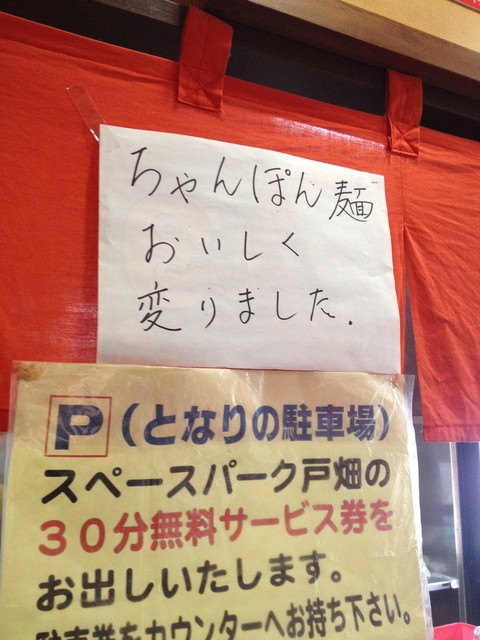 ちゃんぽん麺
おいしく
変りました.
P(となりの駐車場)
スペースパーク戸畑の
30分無料サービス券を
お出しいたします。
駐車券をカウンターへお持ち下さい。